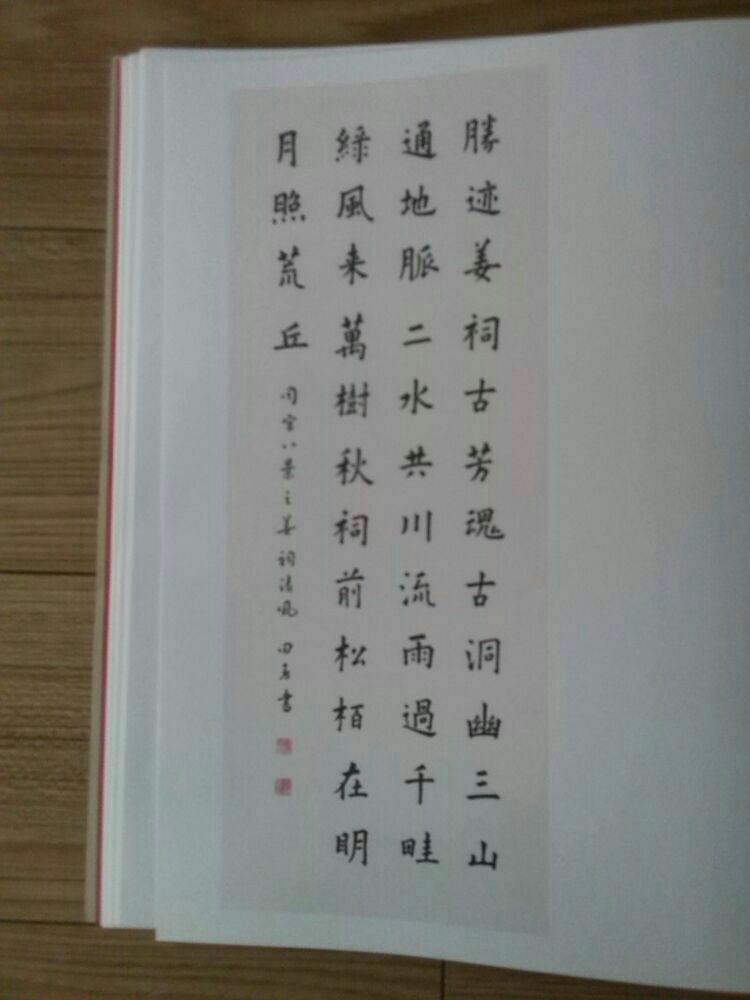 勝迹姜祠古芳魂古洞幽三山
通地脈二水共川流雨過千畦
綠風来萬樹秋祠前松栢在明
月照荒丘 同官八景之姜祠清風 田書